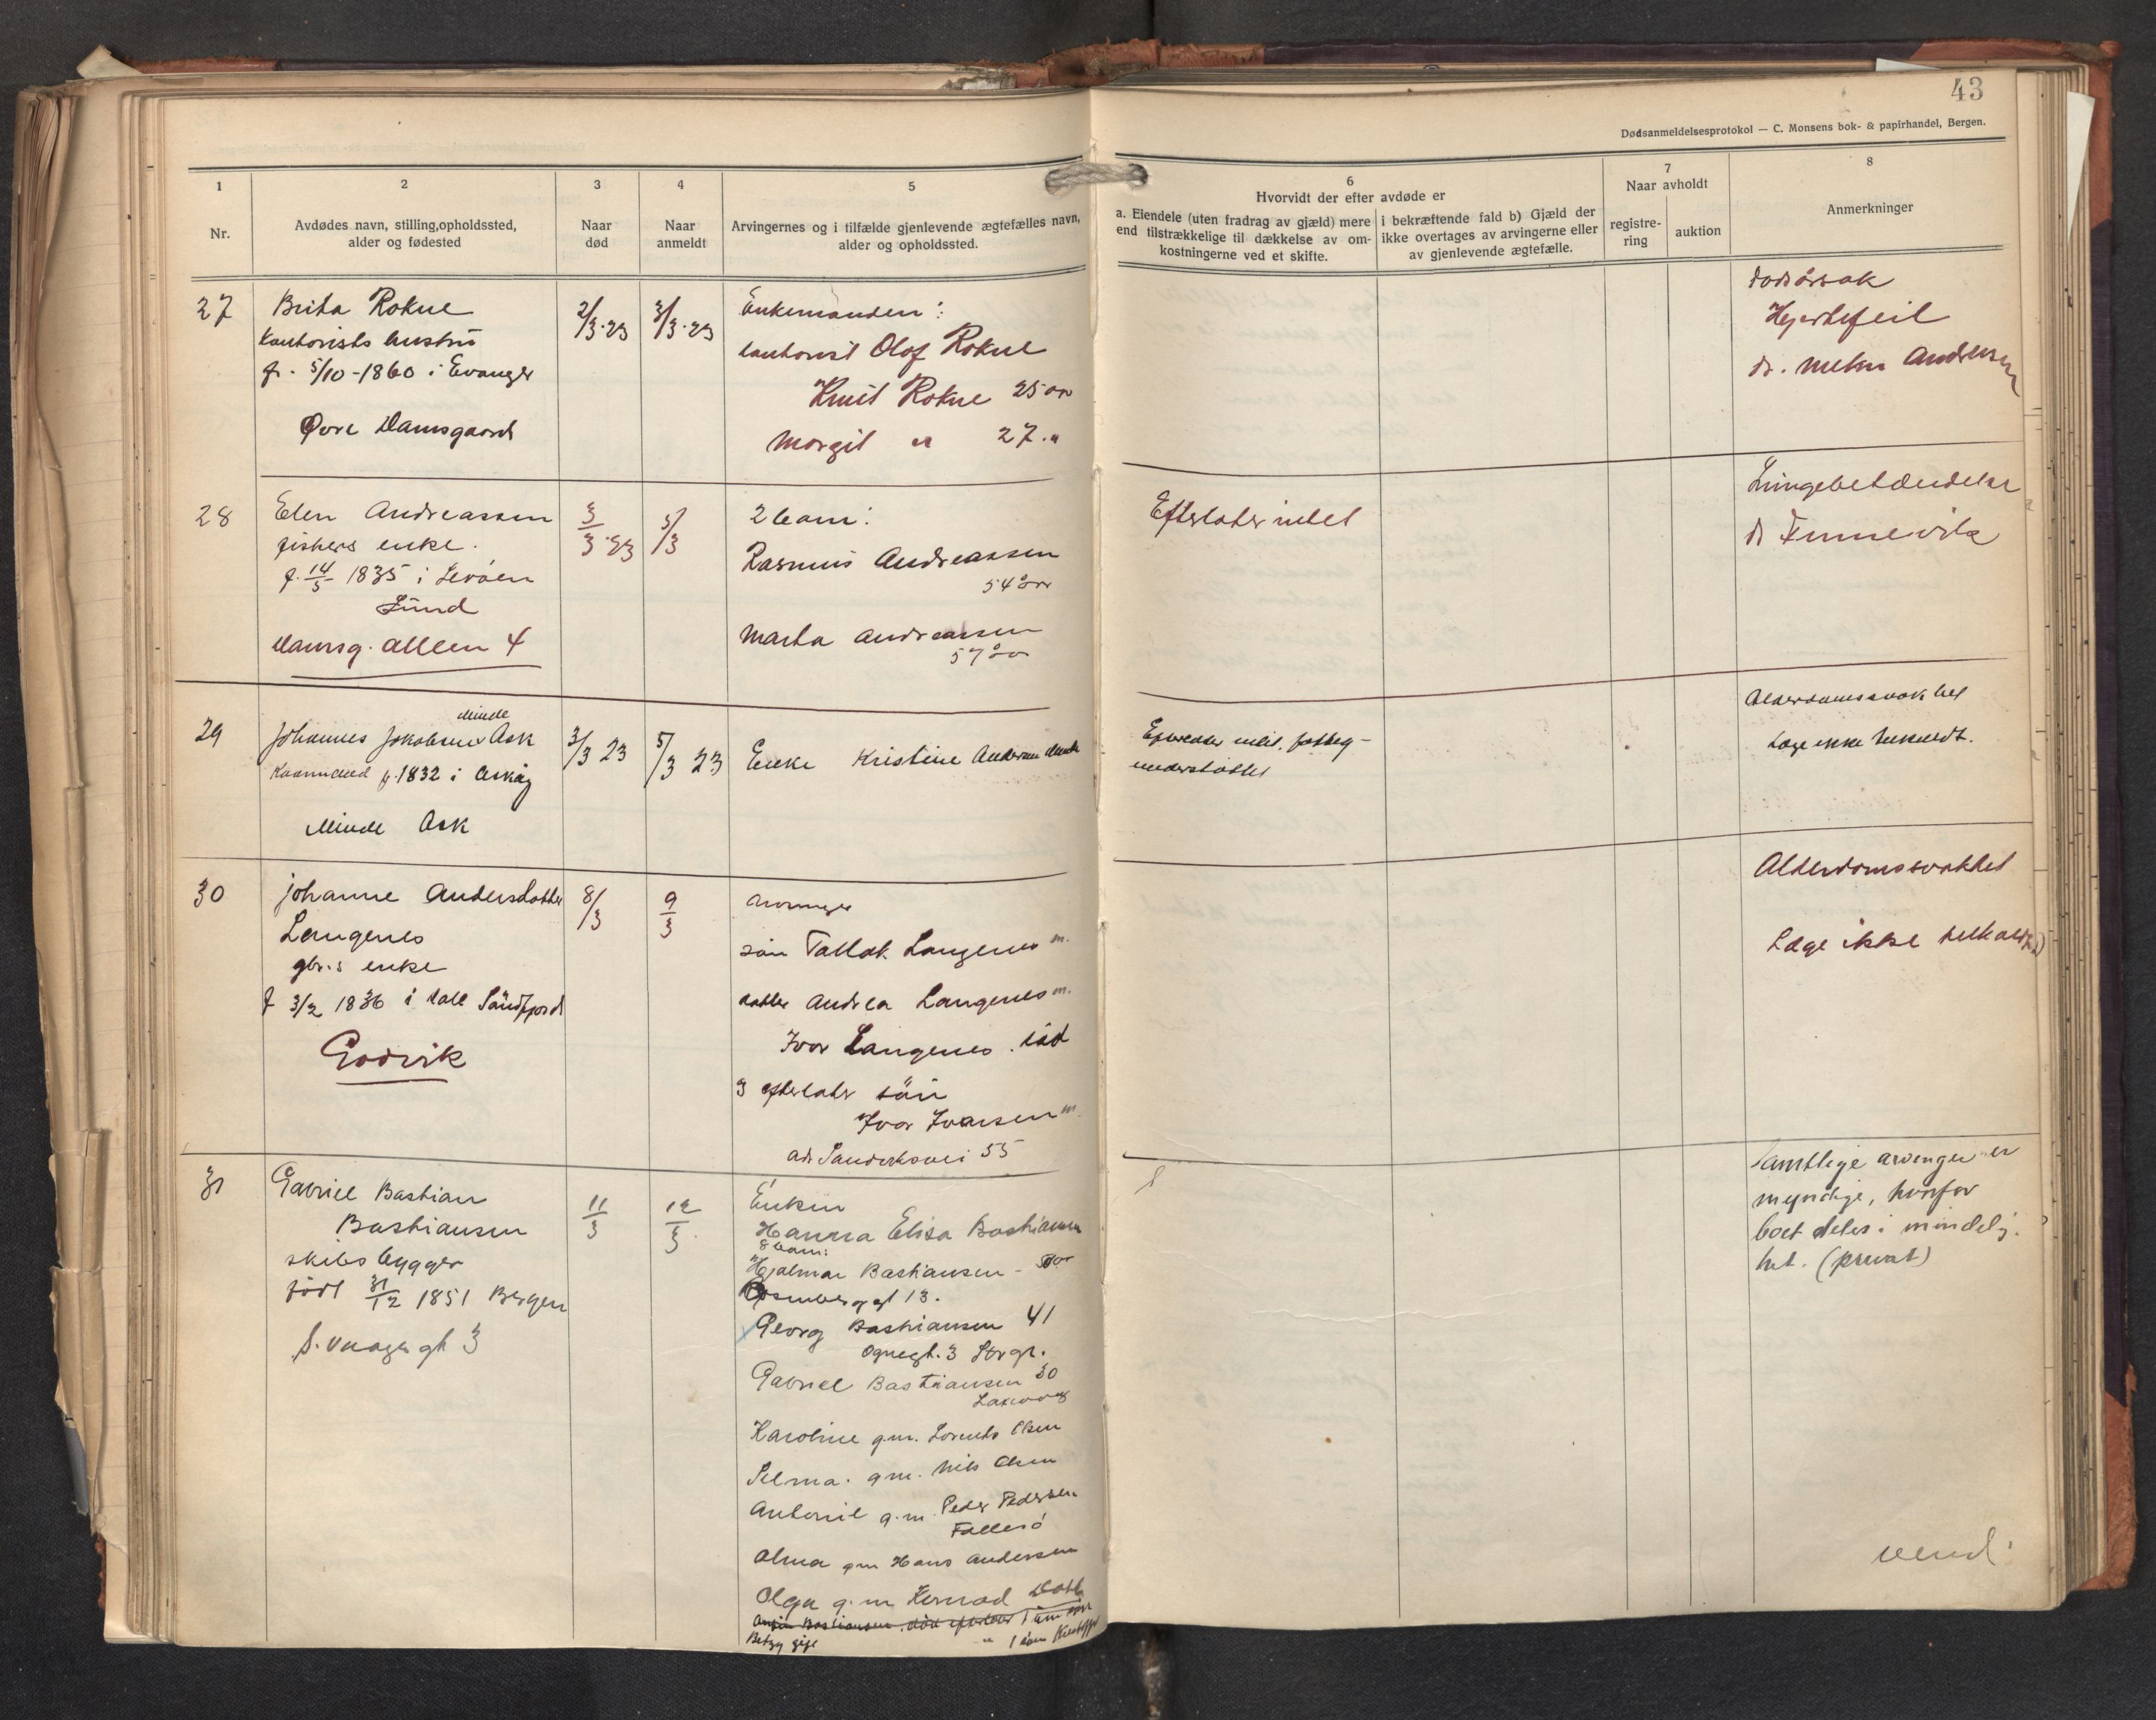 43
Dødsanmeldelsesprotokol — C. Monsens bok- & papirhandel, Bergen.
1
Nr.
2
Avdødes navn, stilling, opholdssted,
alder og fødested
3
Naar
død
4
Naar
anmeldt
5
Arvingernes og i tilfælde gjenlevende ægtefælles navn,
alder og opholdssted.
6
Hvorvidt der efter avdøde er
a. Eiendele (uten fradrag av gjæld) mere
end tilstrækkelige til dækkelse av om-
kostningerne ved et skifte.
i bekræftende fald b) Gjæld der
ikke overtages av arvingerne eller
av gjenlevende ægtefælle.
7
Naar avholdt
registre-
ring
auktion
8
Anmerkninger
27
Brita Rokne
Kantorists hustru
f. 5/10-1860 i Evanger
Øvre Damsgaard
2/3-23
3/3-23
Enkemanden:
kantorist Olof Rokne
Knut Rokne 25 aar
Margit " 27 "
Dødsårsak
Hjertefeil
dr. Andersen
28
Elen Andreassen
fiskers enke.
f. 14/5 1835 i
Lund
Damsg. alleen 4
3/3-23
5/3
2 barn:
Rasmus Andreassen
54 år
Marta Andreassen
57 år
Efterlater intet
Lungebetændelse
dr Finnevik
29
Minde
Johannes Jakobsen Ask
Kaarmand f. 1832 i Askøy
Minde Ask
3/3 23
5/3 23
Enke Kristine Andersen Minde
Efterlater intet, fattig-
understøttet
Alderdomssvakhet
Læge ikke tilkaldt.
30
Johanne Andersdotter
Langenes
gbr.s enke
f 3/2 1836 i Dale Søndfjord
Godvik
8/3
9/3
Arvinger
søn Tallak Langenes m.
datter Andrea Langenes m.
Ivar Langenes. død
efterlater søn
Ivar Ivarsen m.
adr Sandviksvei 55
Alderdomssvakhet
Læge ikke tilkaldt
31
Gabriel Bastian
Bastiansen
skibsbygger
født 31/12 1851 Bergen
3
11/3
12/3
Enken
Hanna Elisa Bastiansen
8 barn:
Hjalmar Bastiansen -
Rosenberggt 13.
Georg Bastiansen 41
3
Gabriel Bastiansen 30
Laksevaag
Karoline g.m. Lorents Olsen
Selma. g.m. Nils Olsen
Antonie g.m. Peder Pedersen
Alma gm Hans Andersen
Olga g.m Konrad
Bastiansen død efterlater 1
Betzy gift
Samtlige arvinger er
myndige, hvorfor
boet deles i mindelig-
het. (privat)
vend!